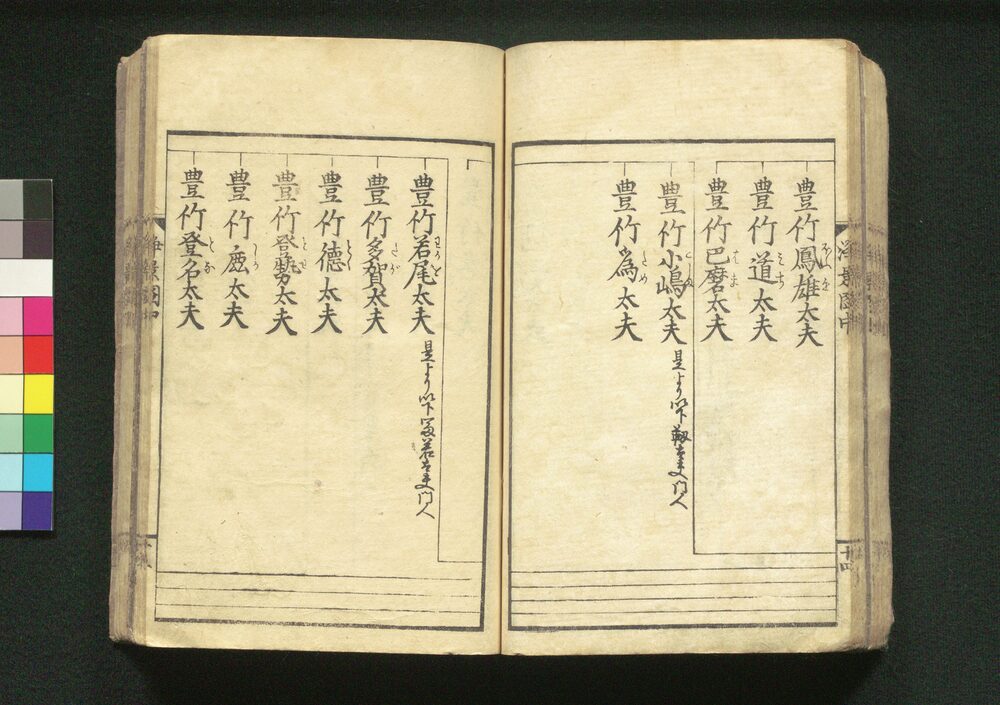 豊竹鳳雄太夫
豊竹道太夫
豊竹巴麿太夫
豊竹小嶋太夫 是より以下靱太夫門人
豊竹為太夫
豊竹若尾太夫 是より以下富若太夫門人
豊竹多賀太夫
豊竹徳太夫
豊竹登勢太夫
豊竹鹿太夫
豊竹登名太夫